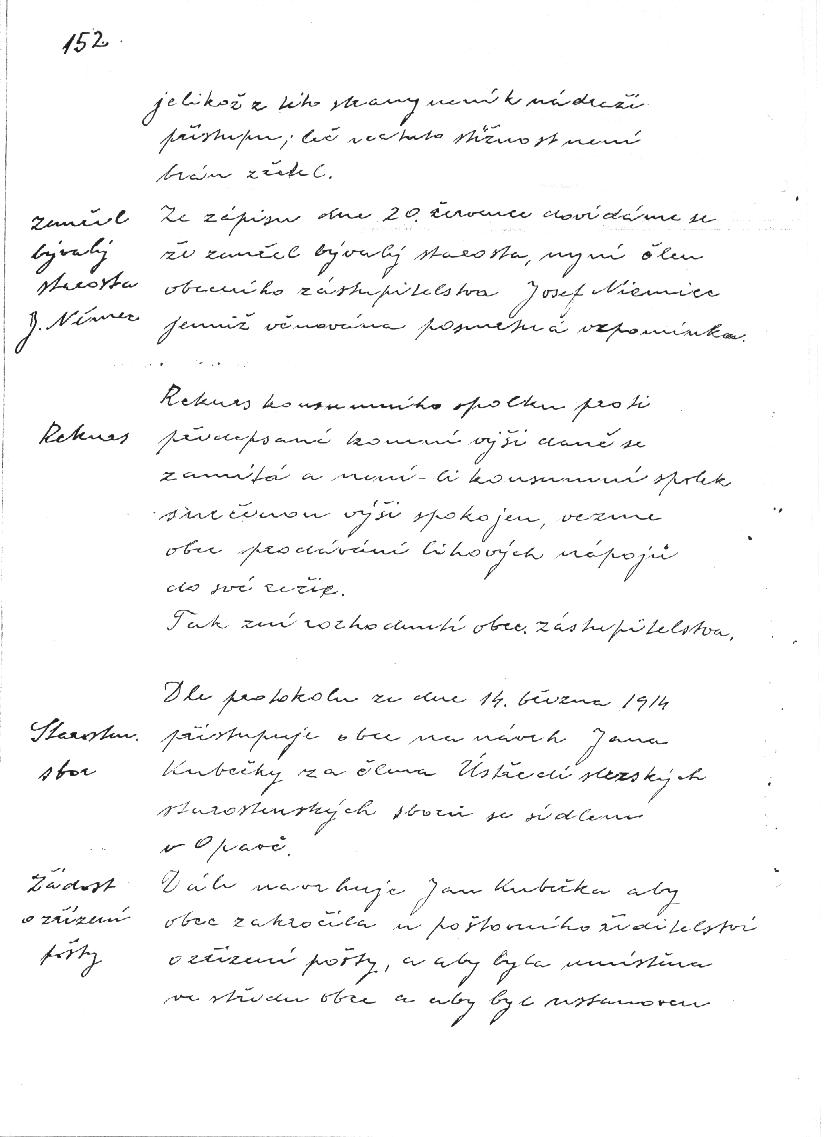 152.
jelikož z této strany není k nádraží
přístupu; leč na tuto stížnost není
brán zřetel.
zemřel
bývalý
starosta
J. Němec
Ze zápisu dne 20. července dovídáme se
že zemřel bývalý starosta, nyní člen
obecního zástupitelstva Josef Niemiec
jemuž věnována posmrtná vzpomínka.
Rekurs
Rekurs konsumního spolku proti
předepsané komní výši daně se
zamítá a není-li konsumní spolek
s určenou výši spokojen, vezme
obec prodávání lihových nápojů
do své režie.
Tak zní rozhodnutí obec. zástupitelstva.
Starosten.
sbor
Dle protokolu ze dne 14. března 1914
přistupuje obec na návrh Jana
Kubečky za člena Ústředí slezských
starostenských sborů se sídlem
v Opavě.
Žádost
o zřízení
pošty
Dále navrhuje Jan Kubečka aby
obec zakročila u poštovního ředitelství
o zřízení pošty, a aby byla umístěna
ve středu obce a aby byl ustanoven